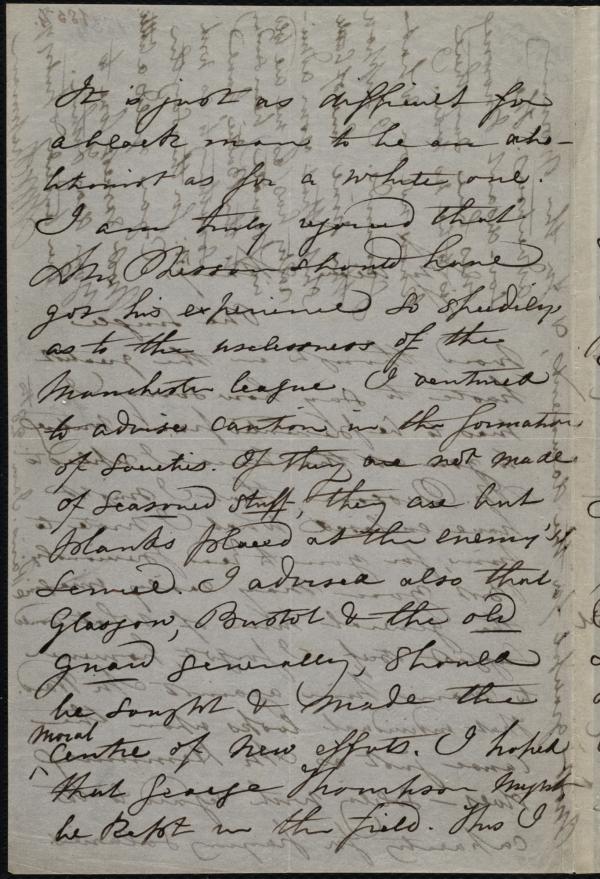 It is just as difficult for
a black man to be an abo-
litionist as for a white one.
I am truly rejoiced that
Mr. Chesson should have
got his experience so speedily
as to the uselessness of the
Manchester league. I ventured
to advise caution in the formation
of Societies. If they are not made
of seasoned stuff, they are but
planks placed at the enemy's
service. I advised also that
Glasgow, Bristol & the old
guard generally, should
be sought & made the
moral
centre of new efforts. I hoped
that George Thompson might
be kept in the field. This I